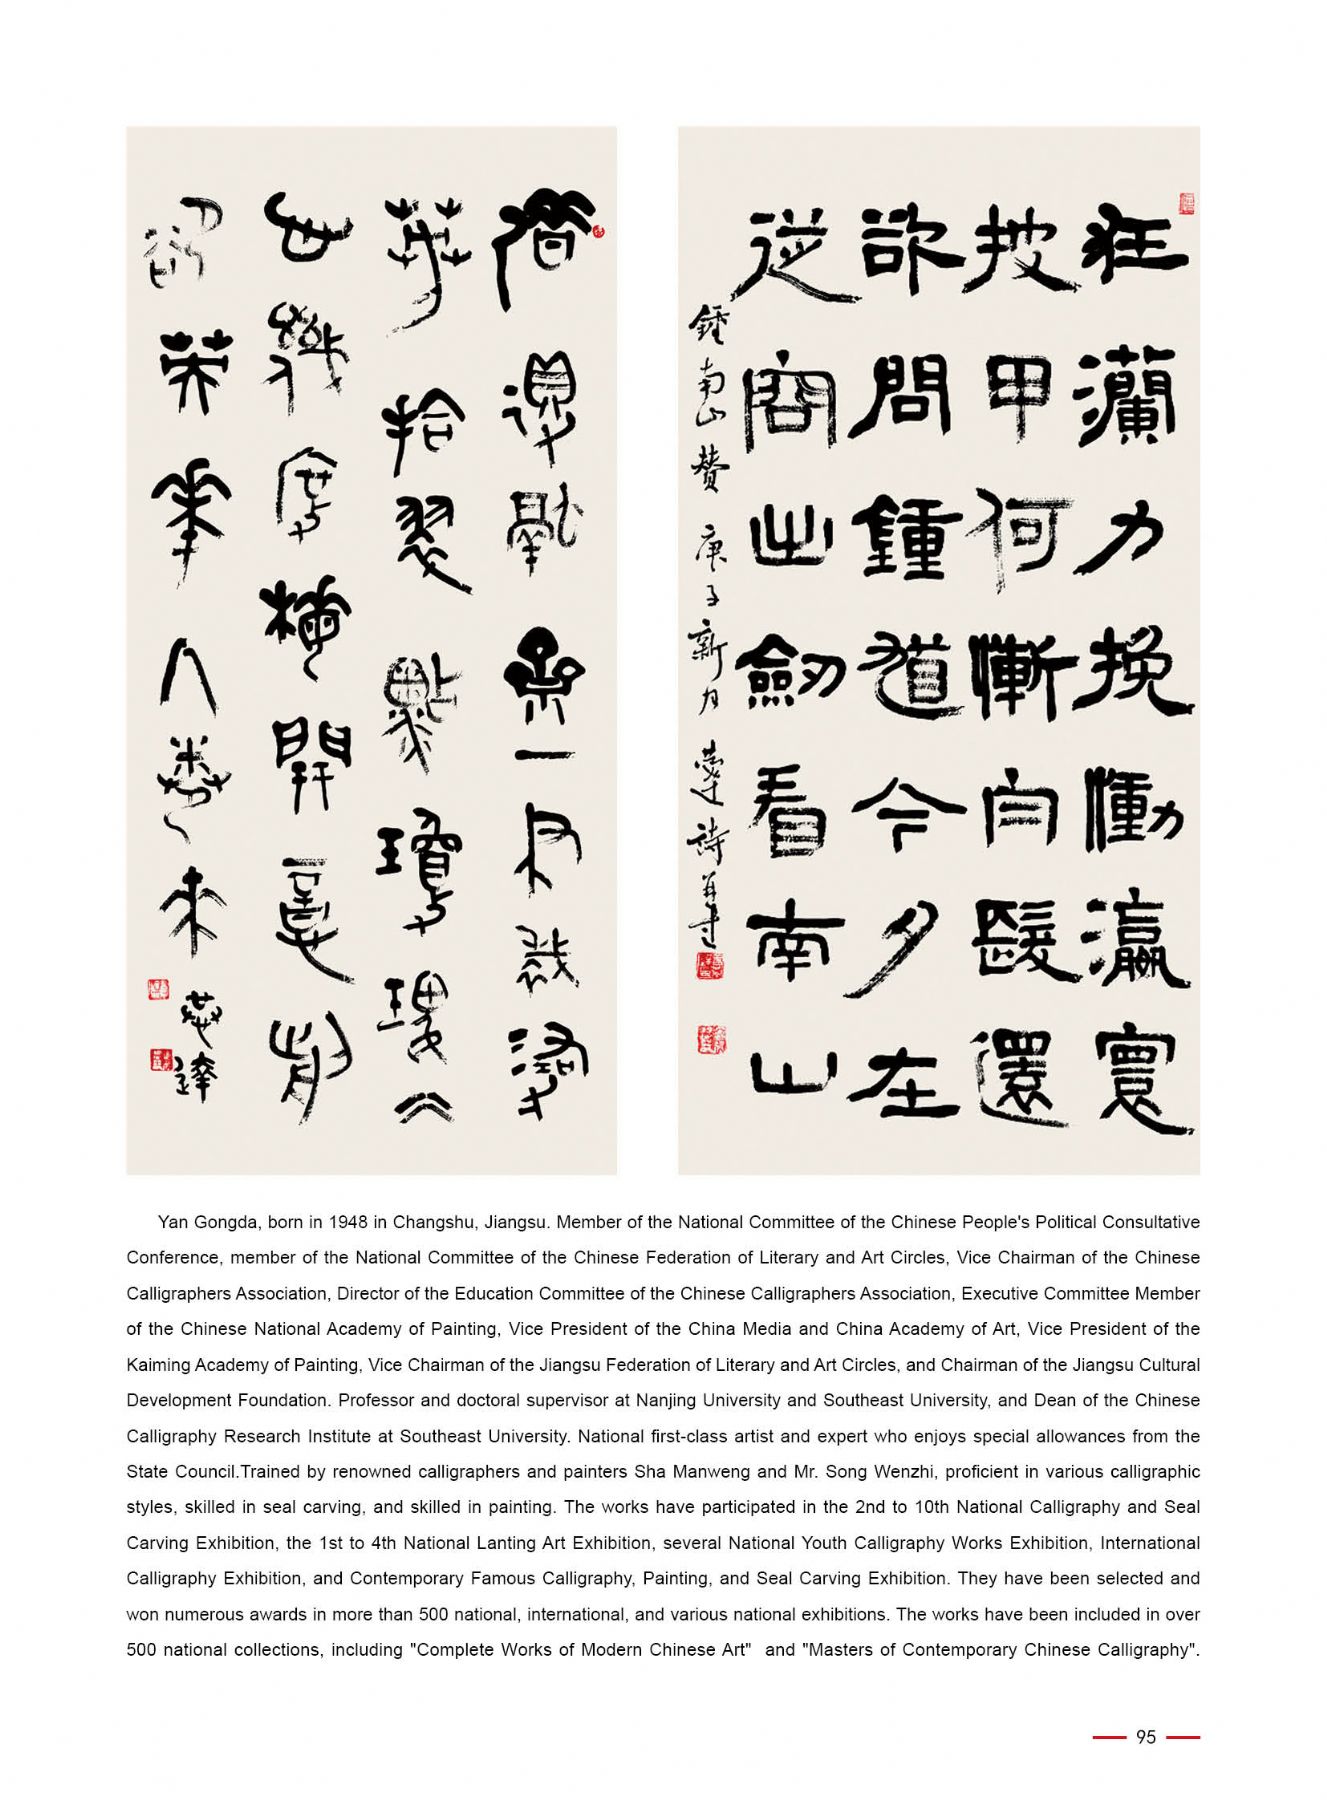 狂瀾力挽慟瀛寰
披甲何慚向還
欲問鍾道今夕在
從容出劍看南山
鍾南山贊 庚子新月 恭達詩并書
拾翠
開意
恭達
Yan Gongda, born in 1948 in Changshu, Jiangsu. Member of the National Committee of the Chinese People's Political Consultative
Conference, member of the National Committee of the Chinese Federation of Literary and Art Circles, Vice Chairman of the Chinese
Calligraphers Association, Director of the Education Committee of the Chinese Calligraphers Association, Executive Committee Member
of the Chinese National Academy of Painting, Vice President of the China Media and China Academy of Art, Vice President of the
Kaiming Academy of Painting, Vice Chairman of the Jiangsu Federation of Literary and Art Circles, and Chairman of the Jiangsu Cultural
Development Foundation. Professor and doctoral supervisor at Nanjing University and Southeast University, and Dean of the Chinese
Calligraphy Research Institute at Southeast University. National first-class artist and expert who enjoys special allowances from the
State Council.Trained by renowned calligraphers and painters Sha Manweng and Mr. Song Wenzhi, proficient in various calligraphic
styles, skilled in seal carving, and skilled in painting. The works have participated in the 2nd to 10th National Calligraphy and Seal
Carving Exhibition, the 1st to 4th National Lanting Art Exhibition, several National Youth Calligraphy Works Exhibition, International
Calligraphy Exhibition, and Contemporary Famous Calligraphy, Painting, and Seal Carving Exhibition. They have been selected and
won numerous awards in more than 500 national, international, and various national exhibitions. The works have been included in over
500 national collections, including "Complete Works of Modern Chinese Art" and "Masters of Contemporary Chinese Calligraphy".
95